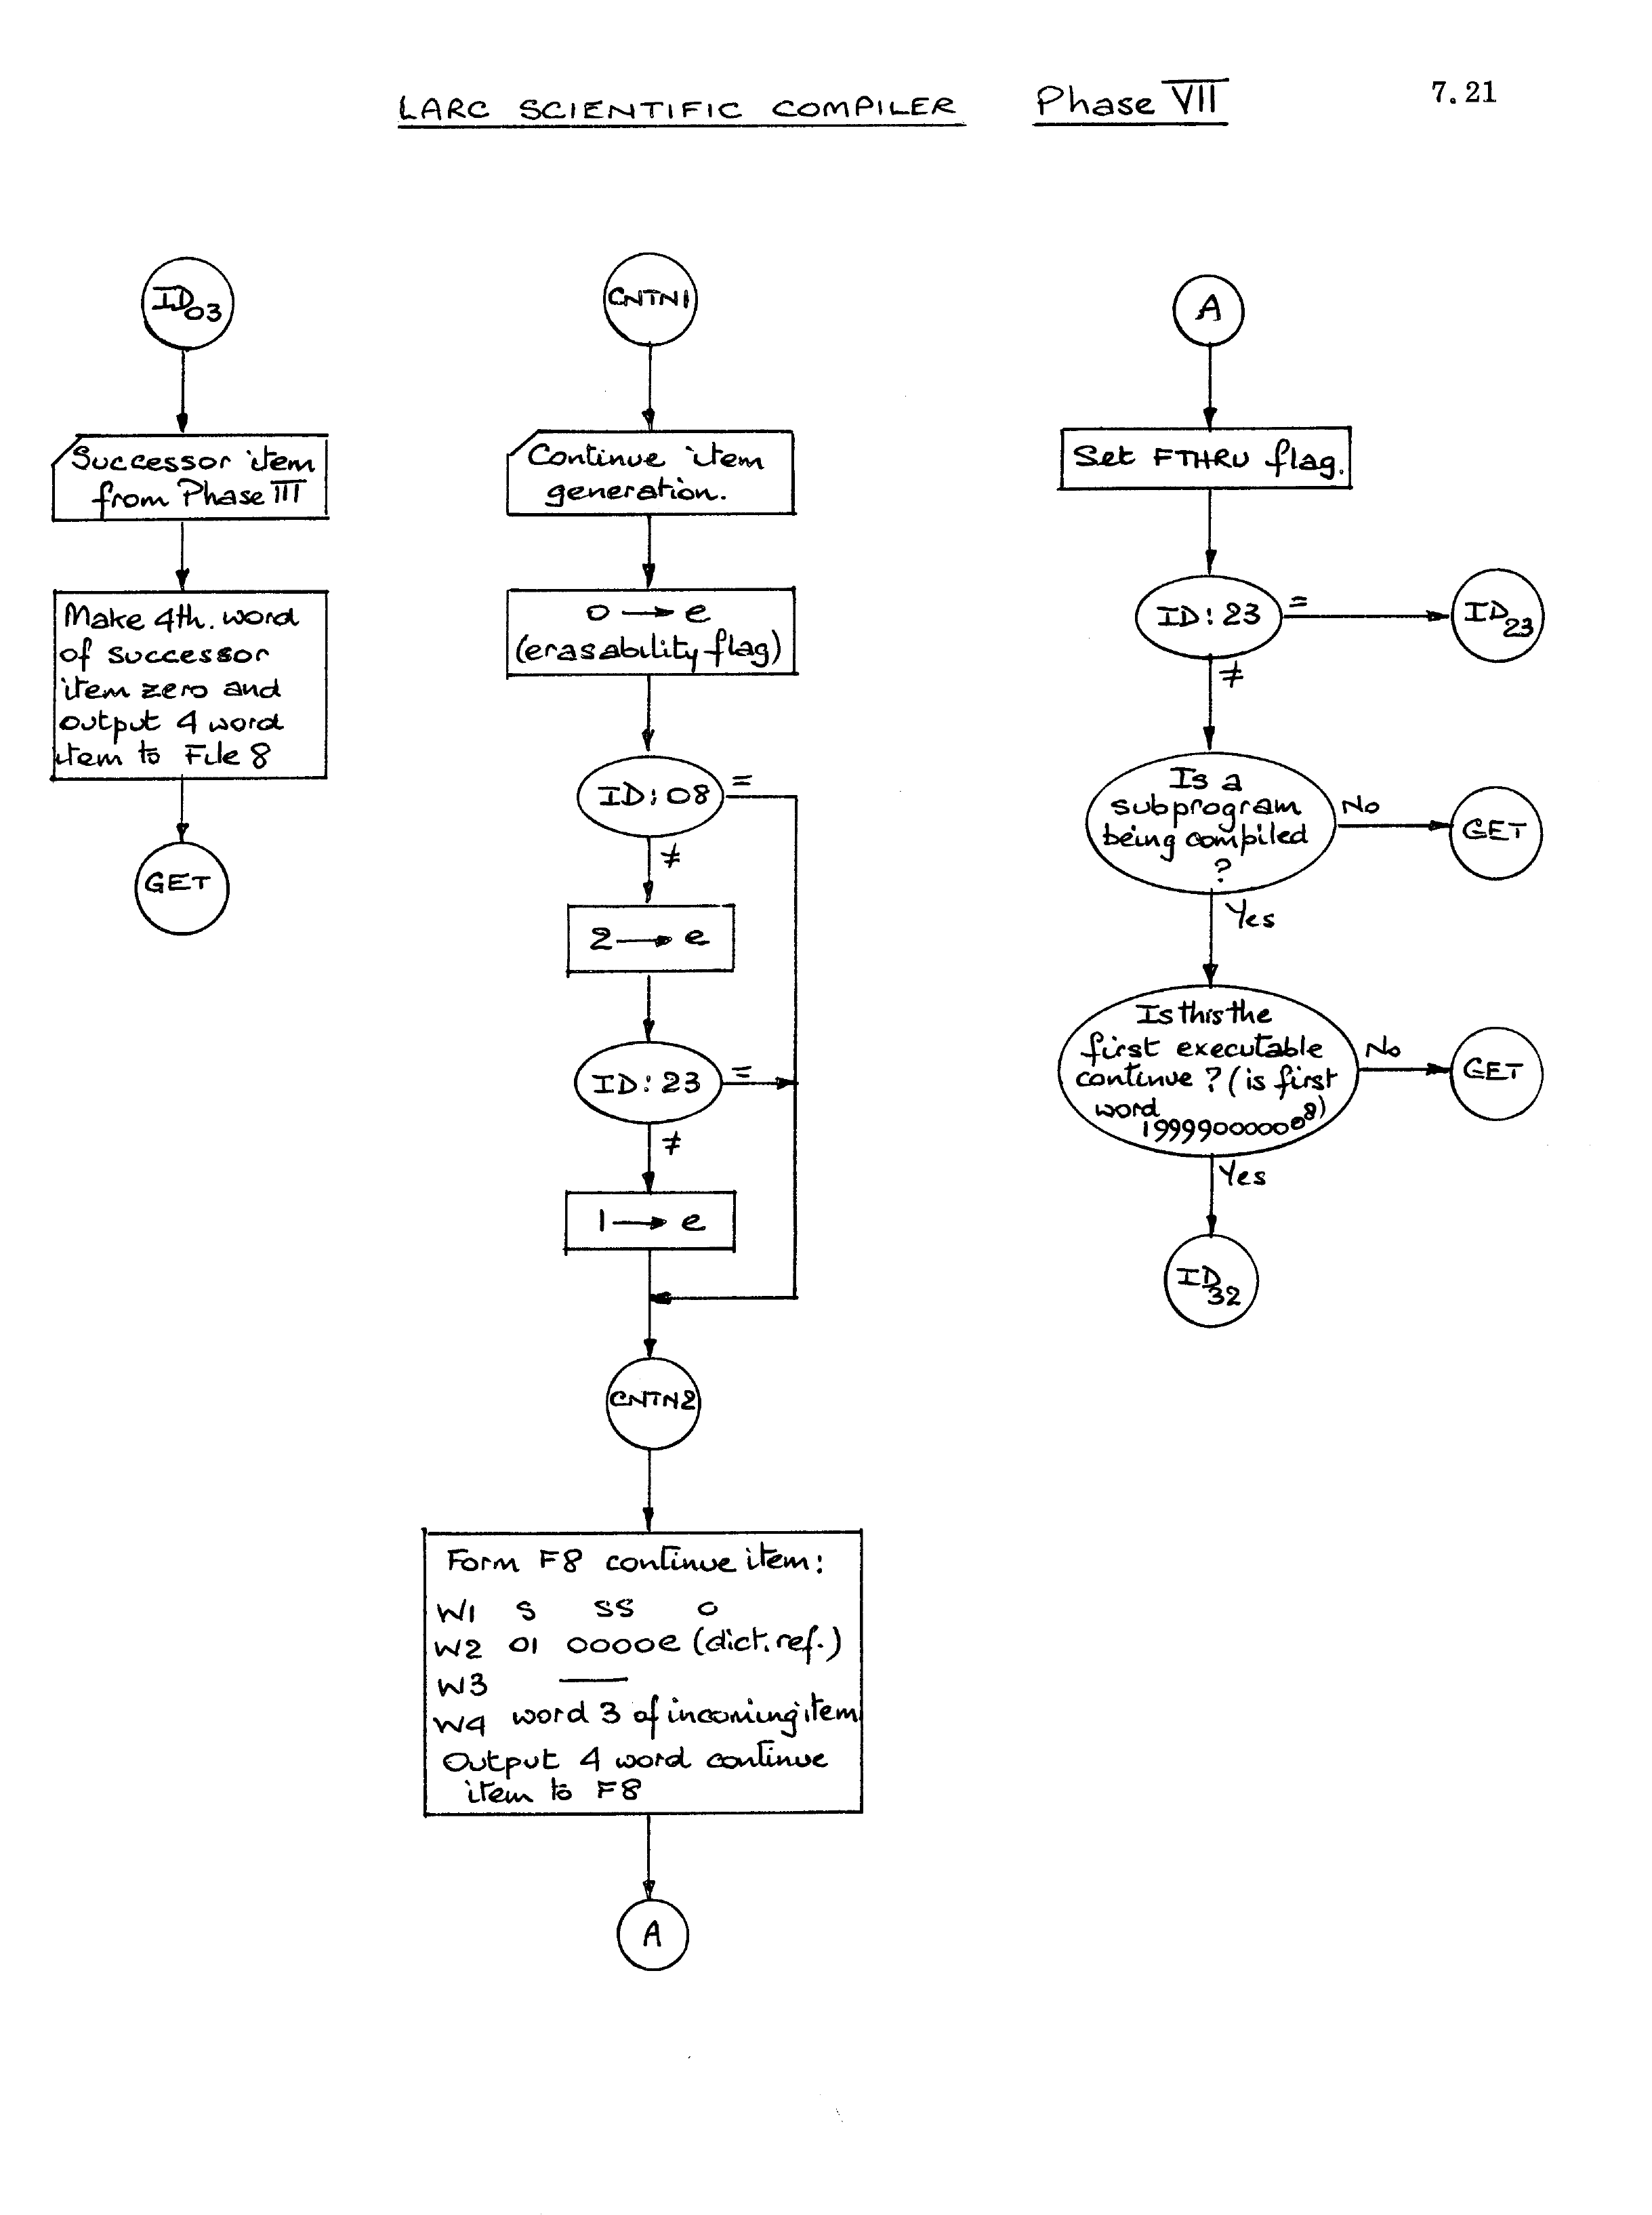 LARC SCIENTIFIC COMPILER Phase VII
7.21
ID03
Successor item
from Phase III
Make 4th. word
of successor
item zero and
output 4 word
item to File 8
GET
CNTN1
Continue item
generation.
0 → e
(erasability flag)
ID:08
=
≠
2 → e
ID:23
=
≠
1 → e
CNTN2
Form F8 continue item:
W1 S SS 0
W2 01 0000e (dict. ref.)
W3 —
W4 word 3 of incoming item
Output 4 word continue
item to F8
A
A
Set FTHRU flag.
ID:23
=
ID23
≠
Is a
subprogram
being compiled
?
No
GET
Yes
Is this the
first executable
continue? (is first
word
199990000008)
No
GET
Yes
ID32